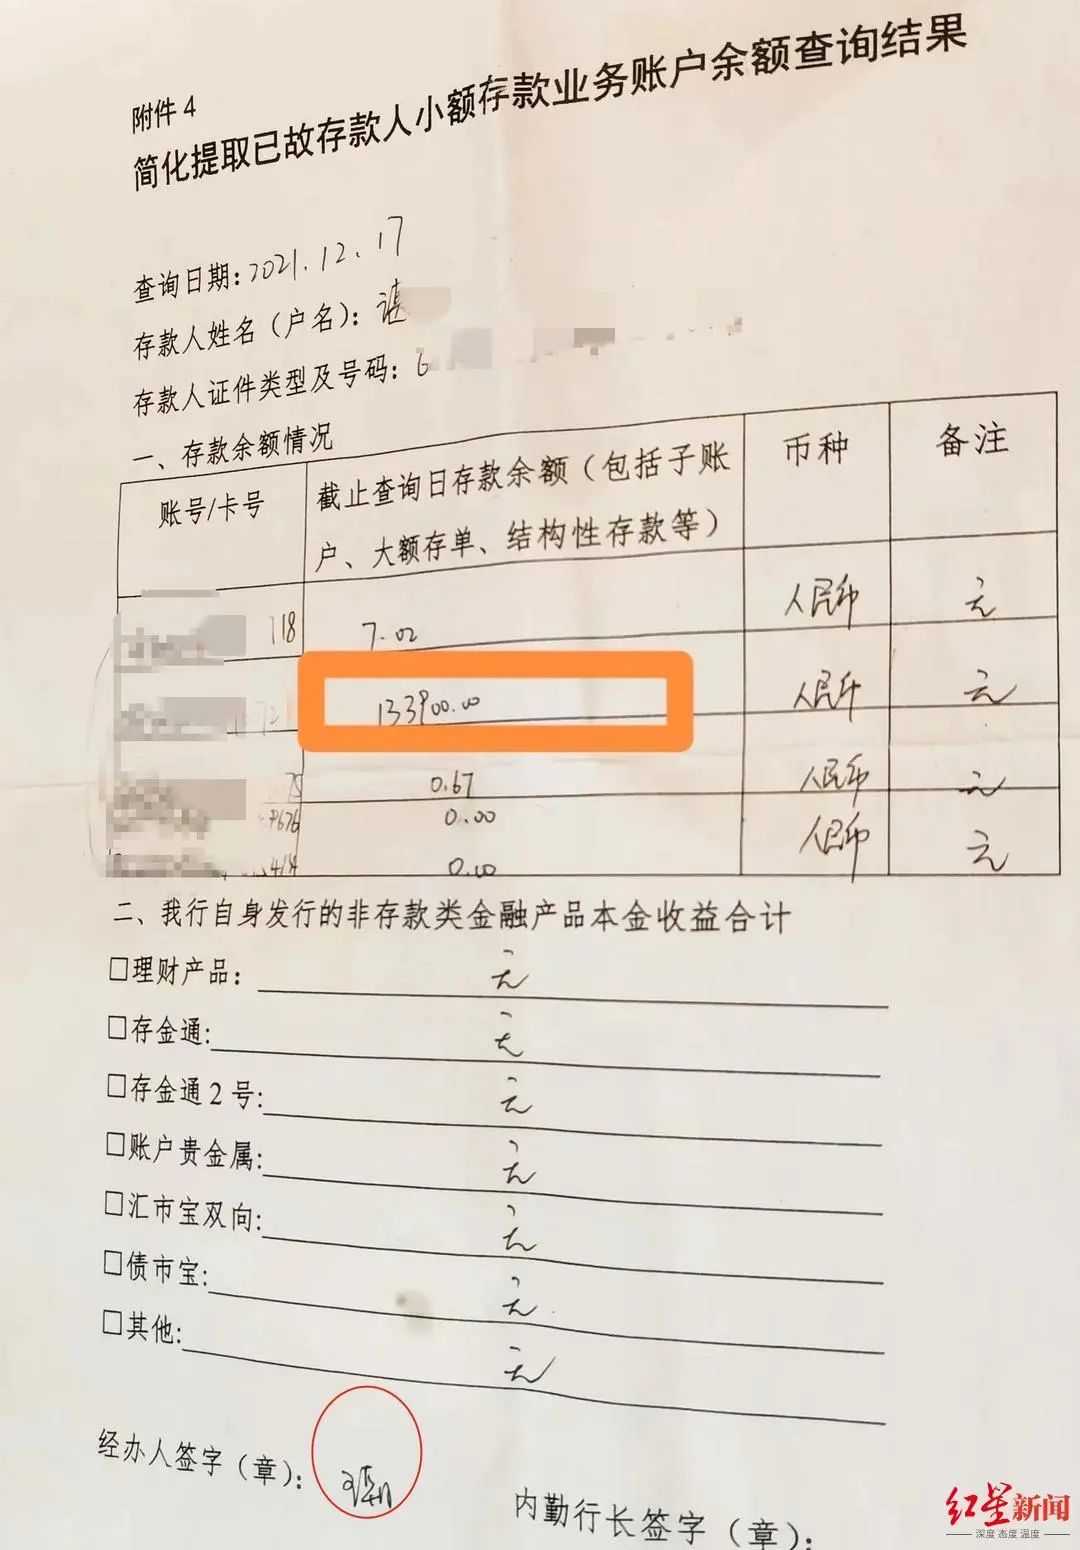 附件4
简化提取已故存款人小额存款业务账户余额查询结果
查询日期:2021.12.17
存款人姓名（户名）：谌
存款人证件类型及号码：6
一、存款余额情况
账号/卡号 截止查询日存款余额（包括子账户、大额存单、结构性存款等） 币种 备注
118 7.02 人民币 元
133900.00 人民币 元
75 0.67 人民币 元
9676 0.00 人民币 元
414 0.00
二、我行自身发行的非存款类金融产品本金收益合计
□理财产品: 无
□存金通: 无
□存金通2号: 无
□账户贵金属: 无
□汇市宝双向: 无
□债市宝: 无
□其他: 无
经办人签字（章）:
内勤行长签字（章）:
红星新闻
深度 态度 温度